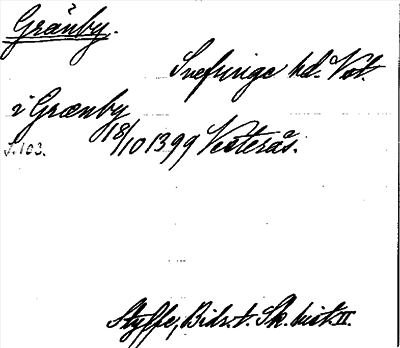 Gränby.
Snefringe hd. Vst.
i Grænby
18/10 1399 Vesterås.
s. 103.
Styffe, Bidr. t. Sk. hist. II.